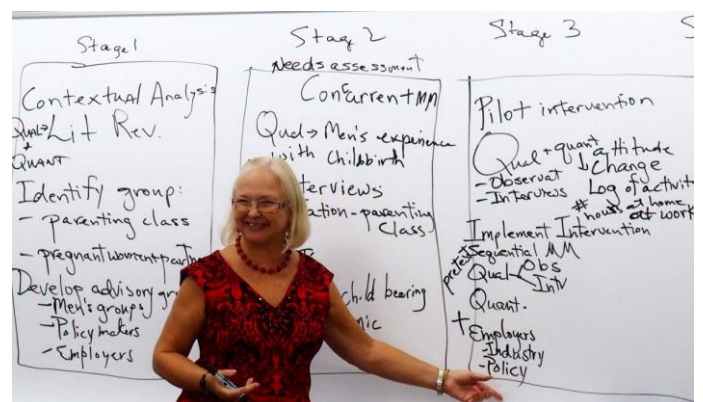 Stage 1
Contextual Analysis
Qual→ Lit Rev.
+
QUANT
Identify group:
- parenting class
- pregnant women + partn
Develop advisory gr
→ Men's groups
→ Policy makers
- Employers
Stage 2
Needs assessment
Concurrent MM
Qual → Men's experience
with childbirth
terviews
ation - parenting
Class
child bearing
nic
Stage 3
Pilot intervention
Qual + quant attitude
↓ Change
- Observat
- Interviews
Log of activit
# hours at home
at work
Implement Intervention
Sequential MM
pretest Qual Obs
Intv
Quant.
+ Employers
- Industry
- Policy
S